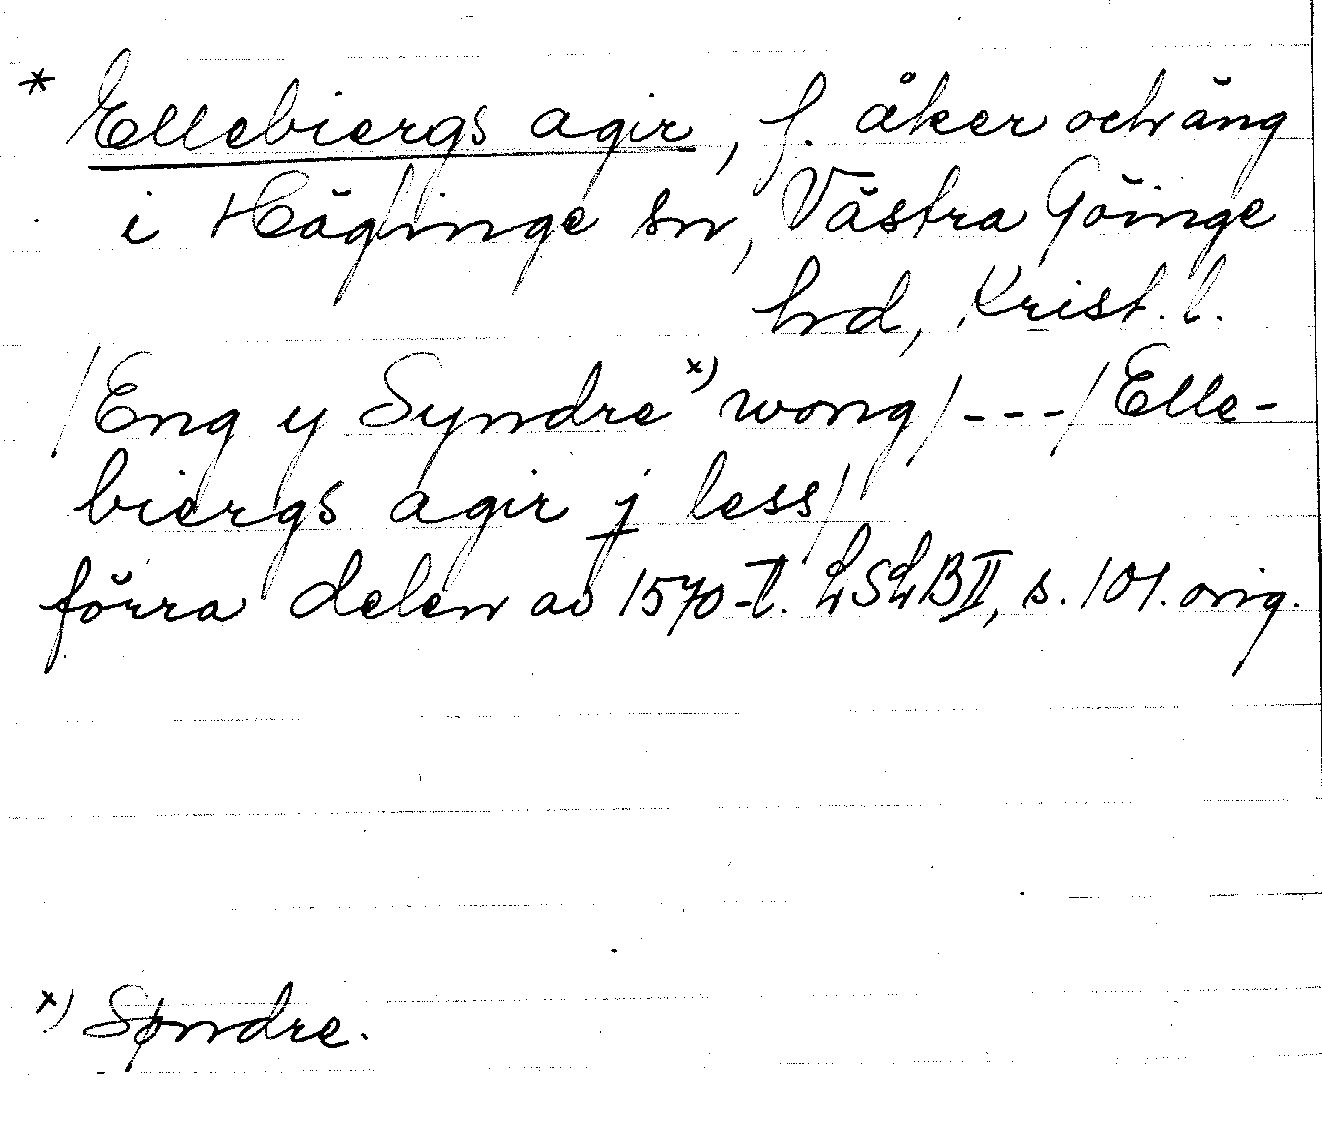 * Ellebiergs agir, f. åker och äng
i Häglinge sn, Västra Göinge
hd, Krist. l.
/Eng y Syndre x) wong/---/Elle-
biergs agir j less/
förra delen av 1570-t. LSLB II, s. 101. orig.
x) Søndre.